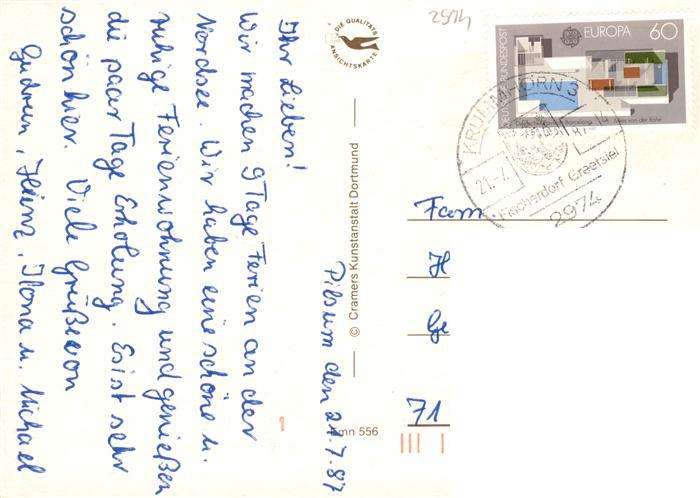 Pilsum den 21.7.87
Ihr Lieben!
Wir machen 9 Tage Ferien an der
Nordsee. Wir haben eine schöne u.
ruhige Ferienwohnung und genießen
die paar Tage Erholung. Es ist sehr
schön hier. Viele Grüße von
Gudrun, Heinz, Ilona u. Michael
DIE QUALITÄTS
ANSICHTSKARTE
© Cramers Kunstanstalt Dortmund
mn 556
2974
BUNDESPOST
EUROPA 60
Mies van der Rohe
KRUMMHÖRN 3
21.-7.
87
Fischerdorf Greetsiel
2974
Fam.
H
Ge
71